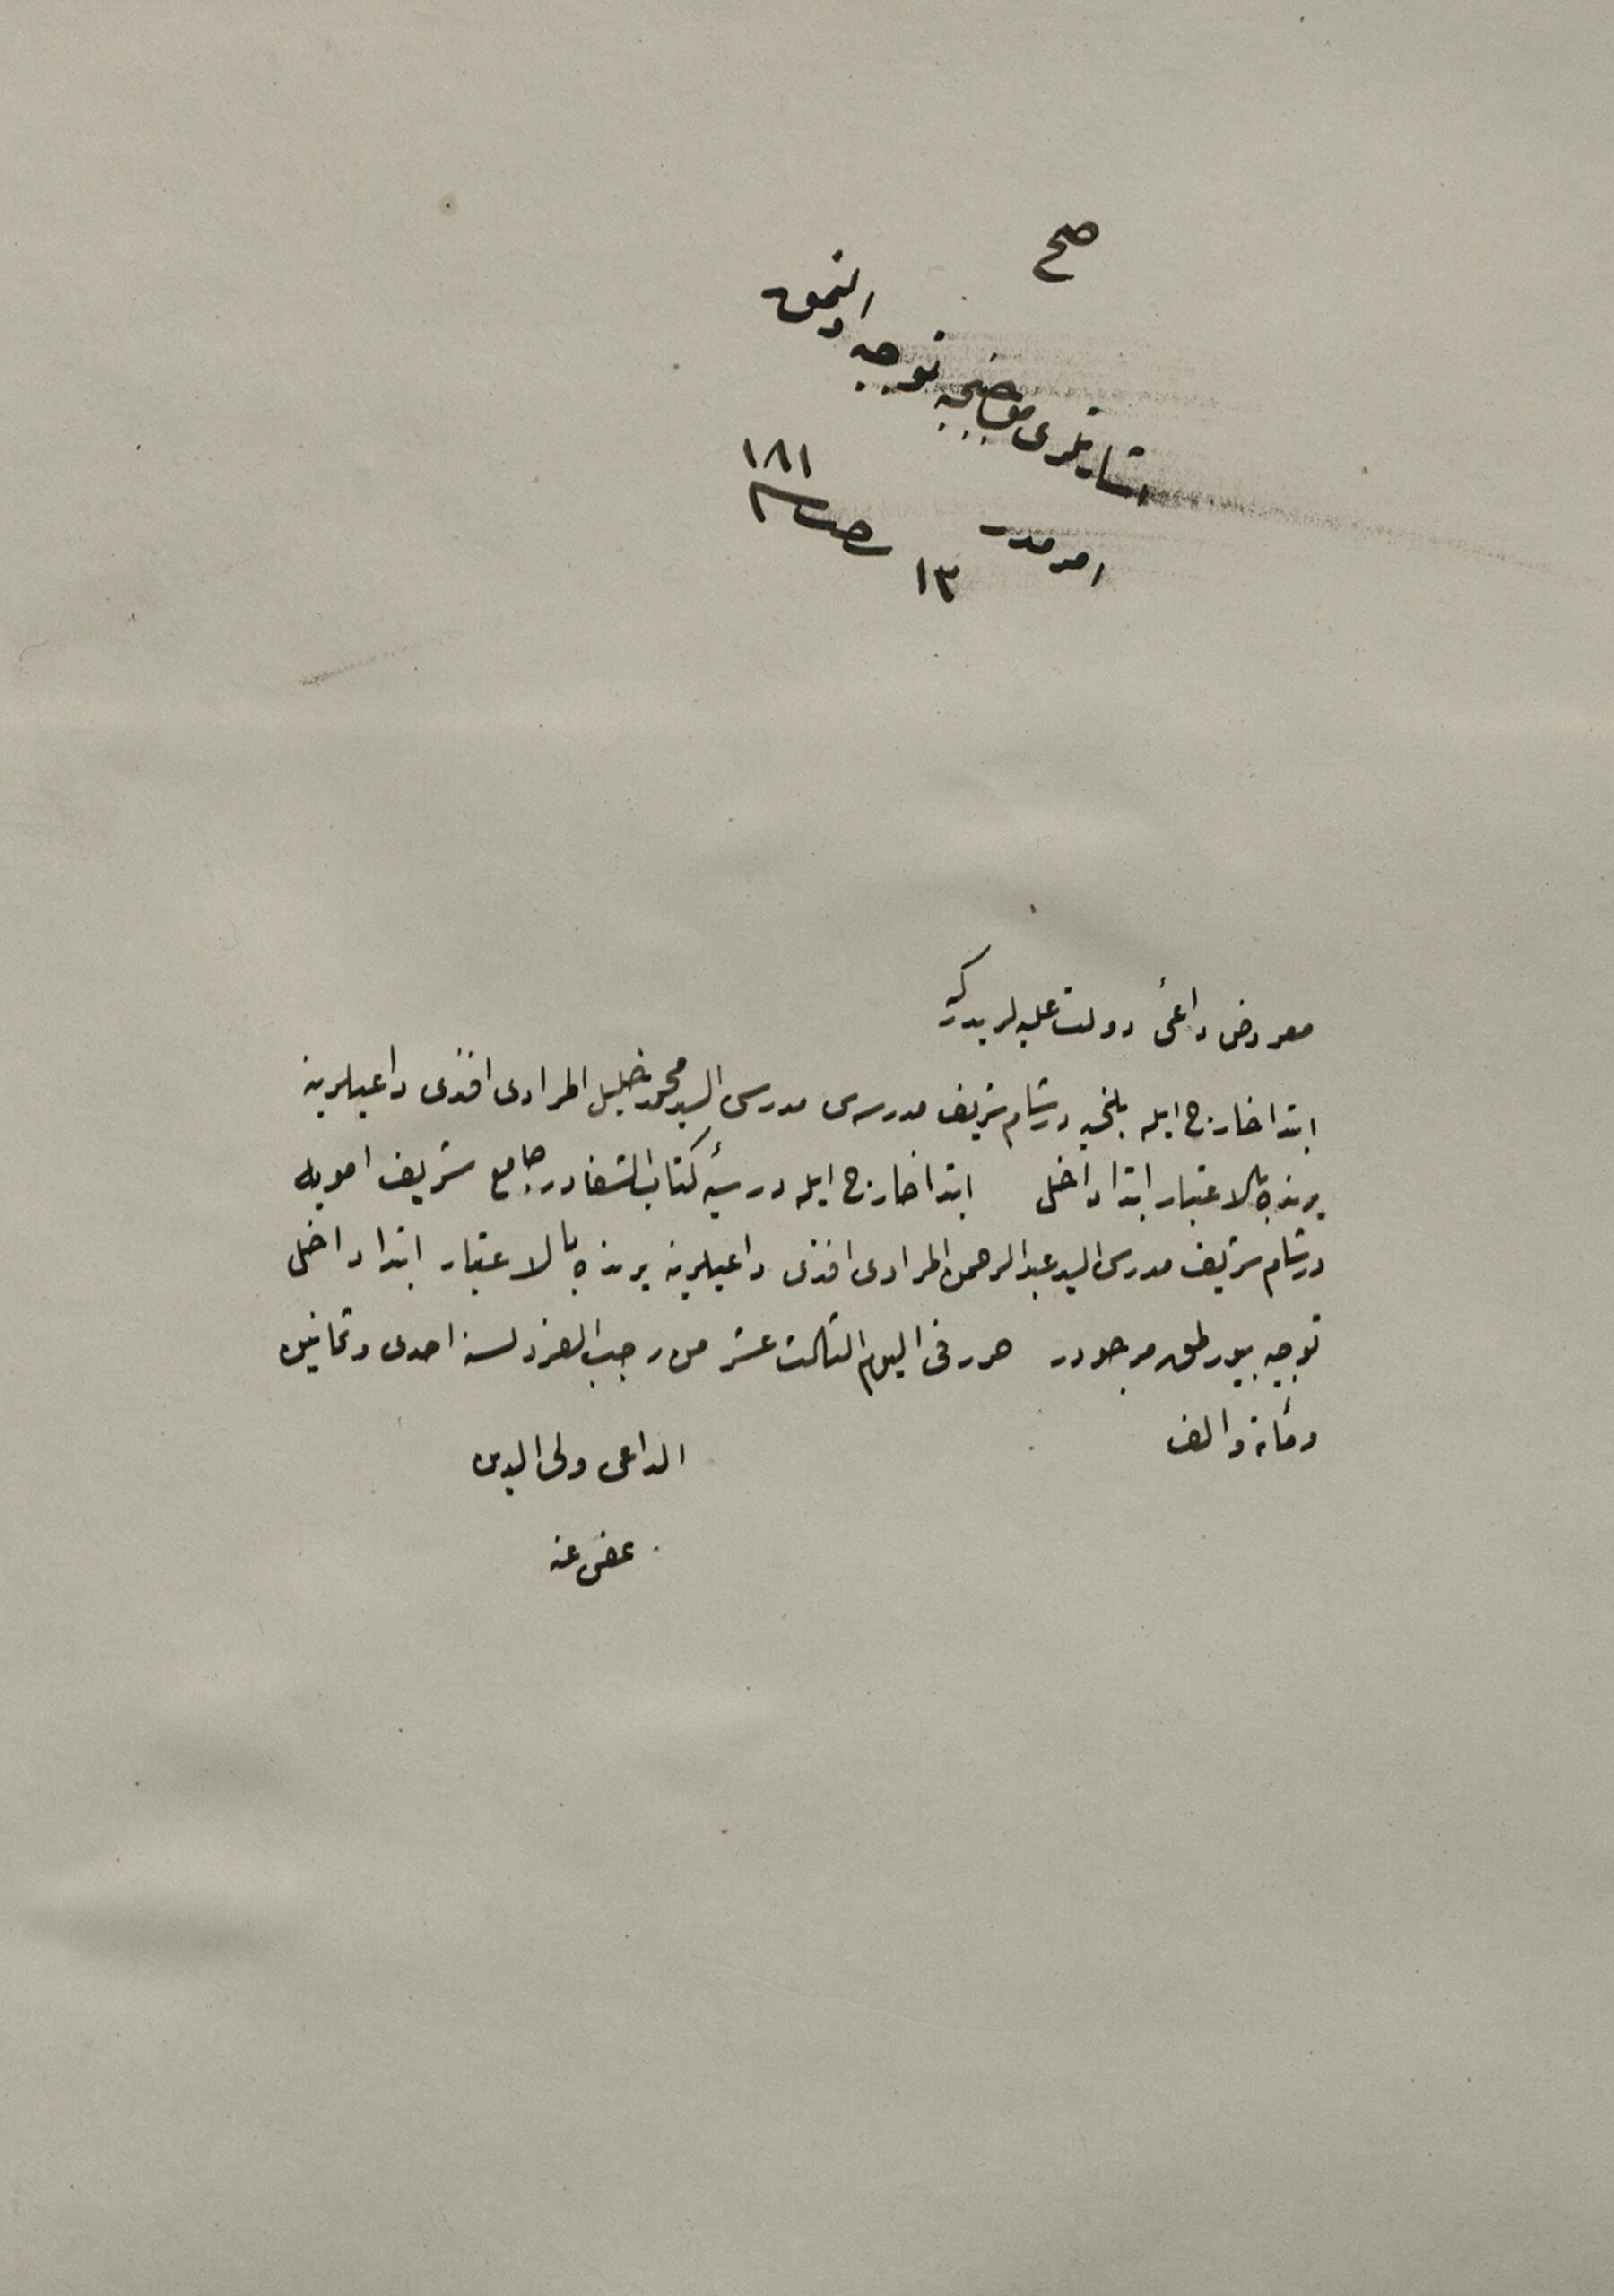 صح
اشارتلری موجبنجه توجیه اولنمق
امرمدر
١٣ رجب سنه ١٨١
معروض داعئ دولت علیه لریدركه
ابتدا خارج ایله بلخیه در شام شریف مدرسه سی مدرسی السید محمد خلیل المرادی افندی داعیلرینه
یرنده بالاعتبار ابتدا داخل ابتدا خارج ایله درسیهٔ كتاب الشفا در جامع شریف امویه
در شام شریف مدرسی السید عبد الرحمن المرادی افندی داعیلرینه یرنده بالاعتبار ابتدا داخل
توجیه بیورلمق مرجودر حرر فی الیوم الثالث عشر من رجب الفرد لسنه احدی وثمانین
ومأئة والف
الداعی ولی الدین
عفی عنه